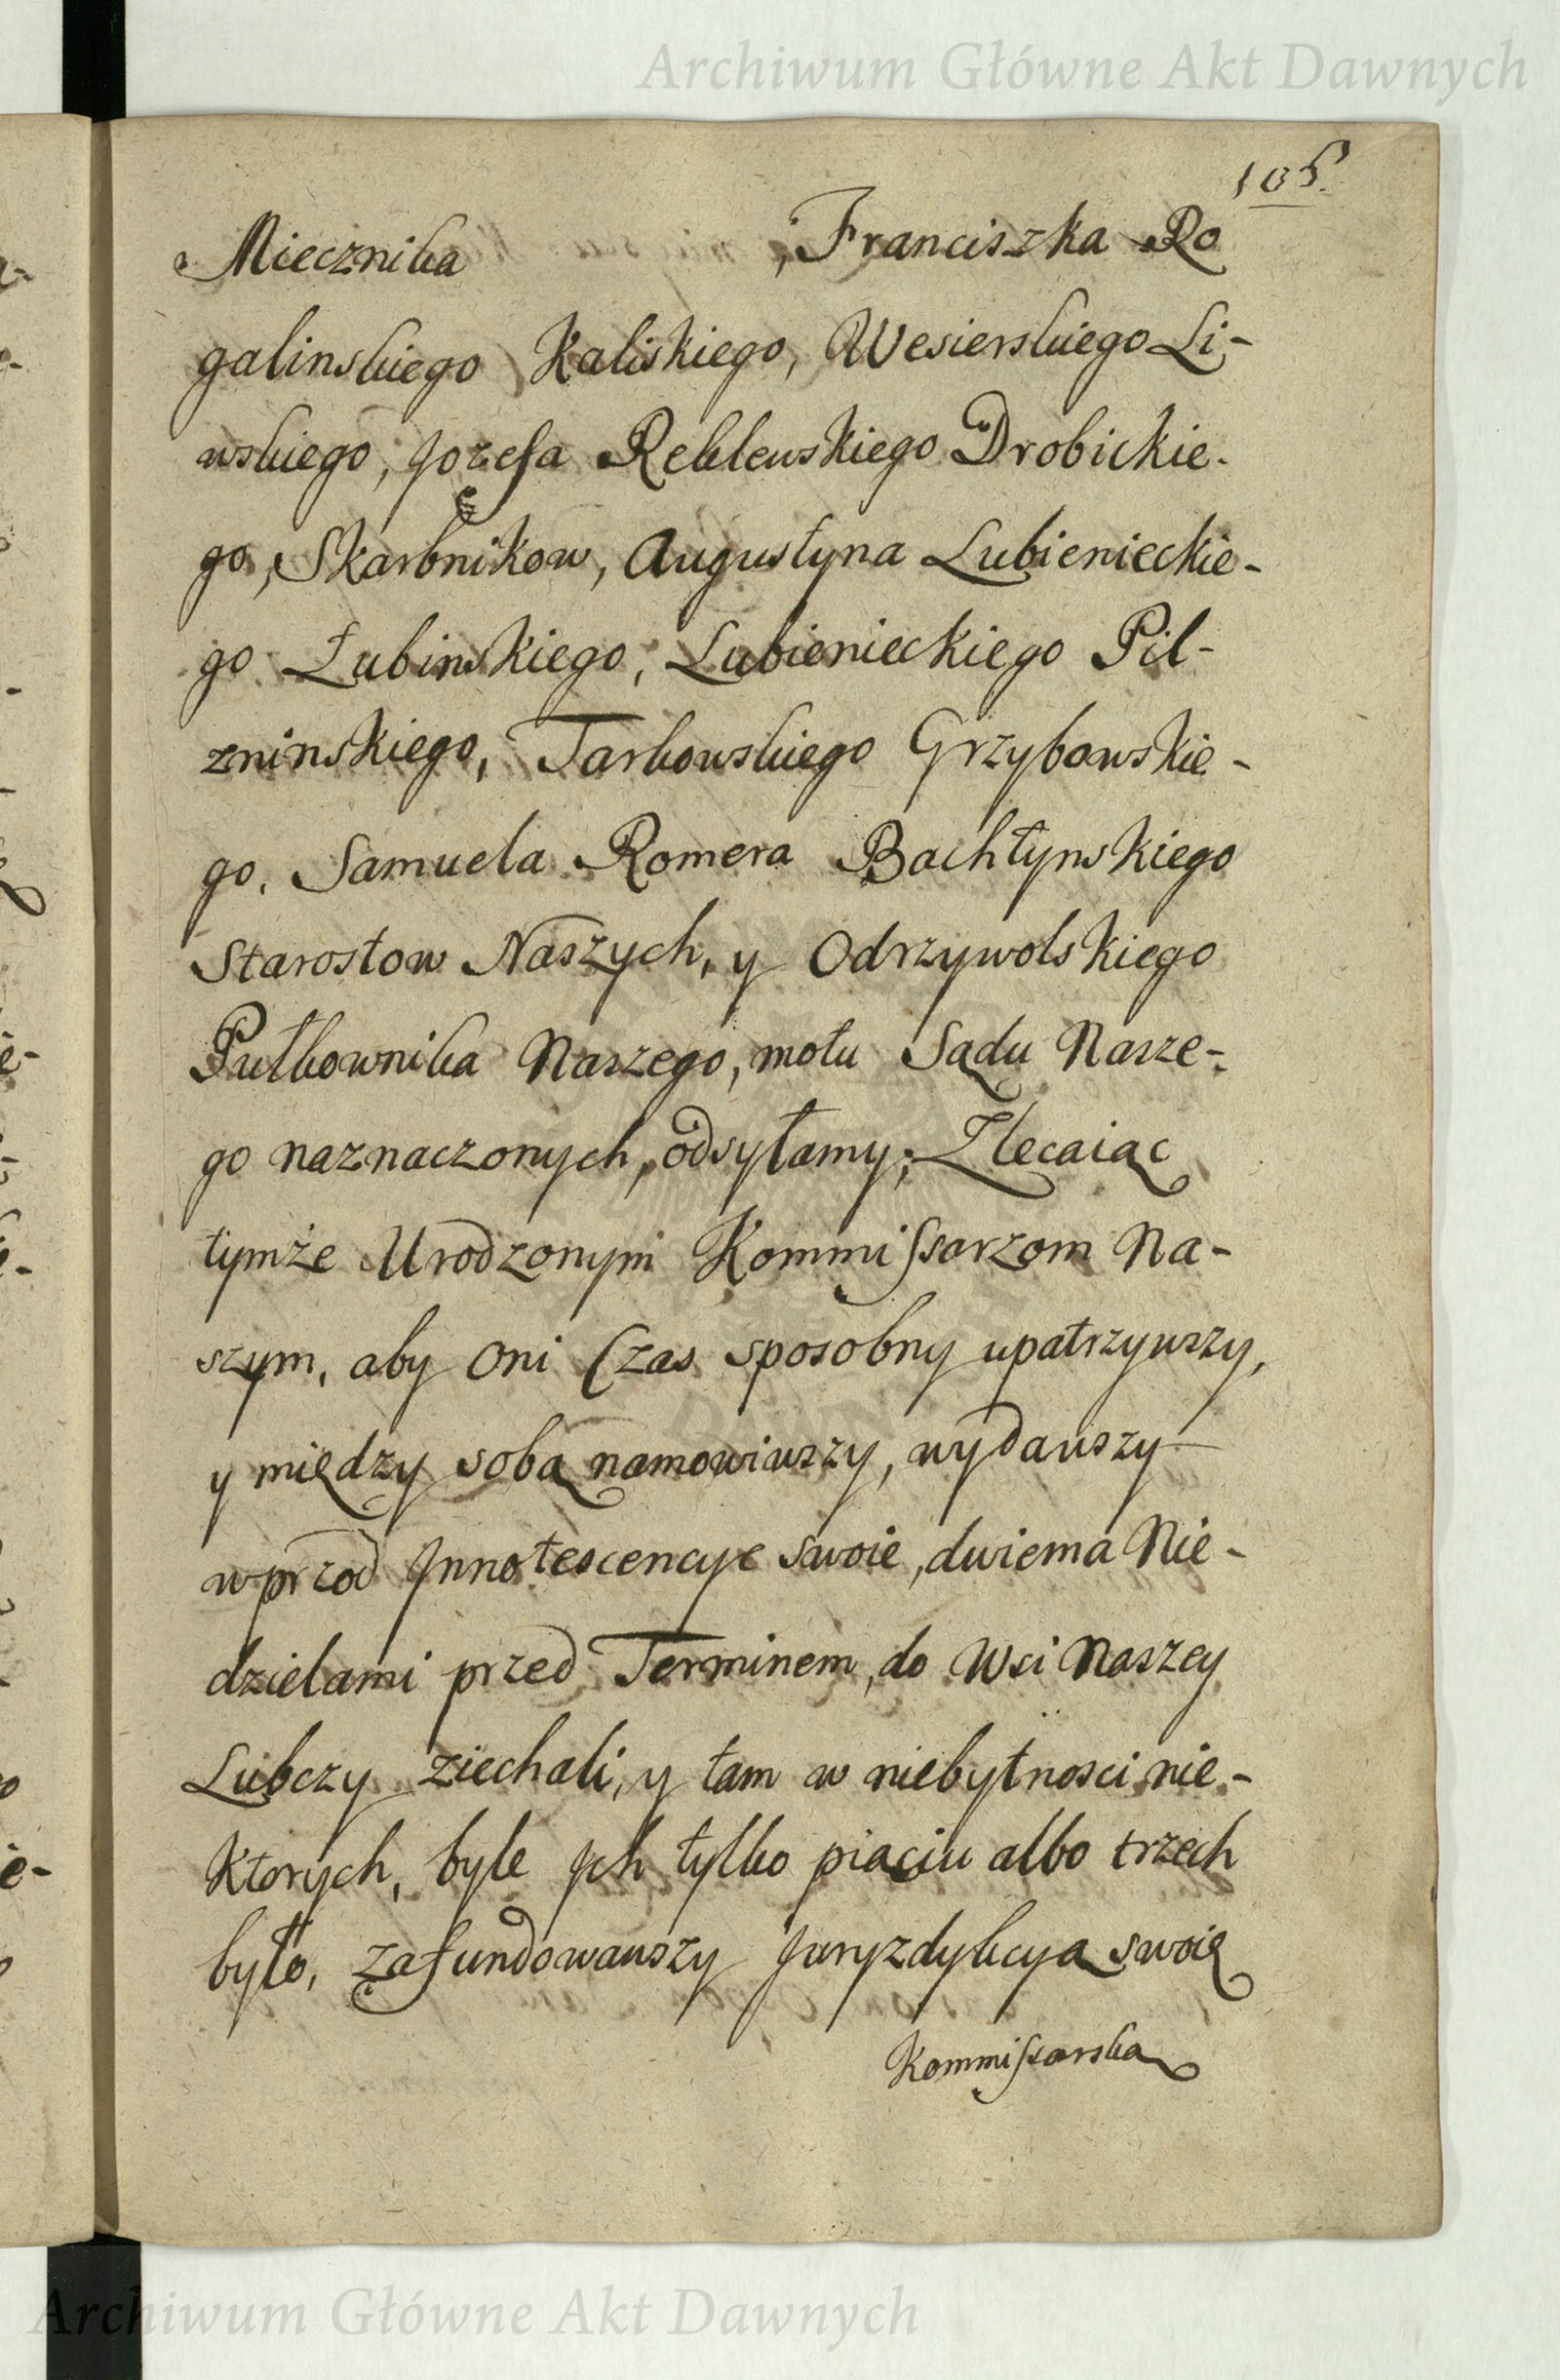 Archiwum Główne Akt Dawnych
105.
Miecznika , Franciszka Ro
galinskiego Kaliskiego, Wesierskiego Li-
wskiego, Jozefa Reklewskiego Drobickie-
go, Skarbnikow, Augustyna Lubienieckie-
go Łubinskiego, Lubienieckiego Pil-
zninskiego, Tarkowskiego Grzybowskie-
go, Samuela Romera Bachłynskiego
Starostow Naszych, y Odrzywolskiego
Pułkownika Naszego, motu Sądu Nasze-
go naznaczonych, odsyłamy; Zlecaiąc
tymże Urodzonym Kommissarzom Na-
szym, aby oni Czas sposobny upatrzywszy,
y między sobą namowiwszy, wydawszy
wprzod Jnnotescencye swoie, dwiema Nie-
dzielami przed Terminem, do Wsi Naszey
Lubczy ziechali, y tam w niebytnosci nie-
ktorych, byle Jch tylko piąciu albo trzech
było, zafundowawszy Juryzdykcyą swoię
Kommissarską
Archiwum Główne Akt Dawnych